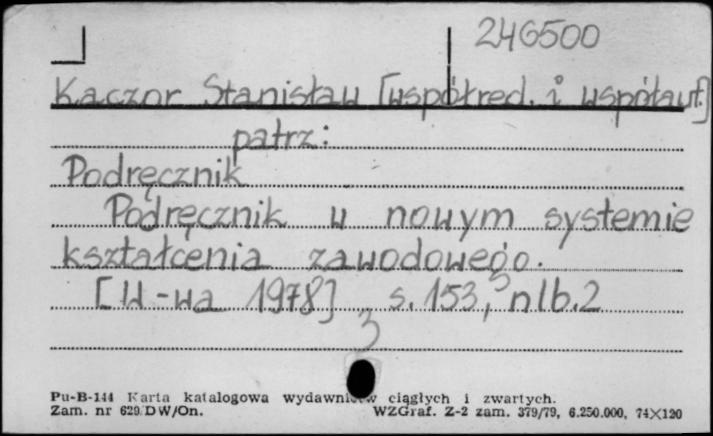 246500
Kaczor Stanisław [współred. i współaut.]
patrz:
Podręcznik
Podręcznik w nowym systemie
kształcenia zawodowego.
[W-wa 1978] s. 153, nlb. 2
3
Pu-B-144 Karta katalogowa wydawnictw ciągłych i zwartych.
Zam. nr 629/DW/On. WZGraf. Z-2 zam. 379/79, 6.250.000, 74×120